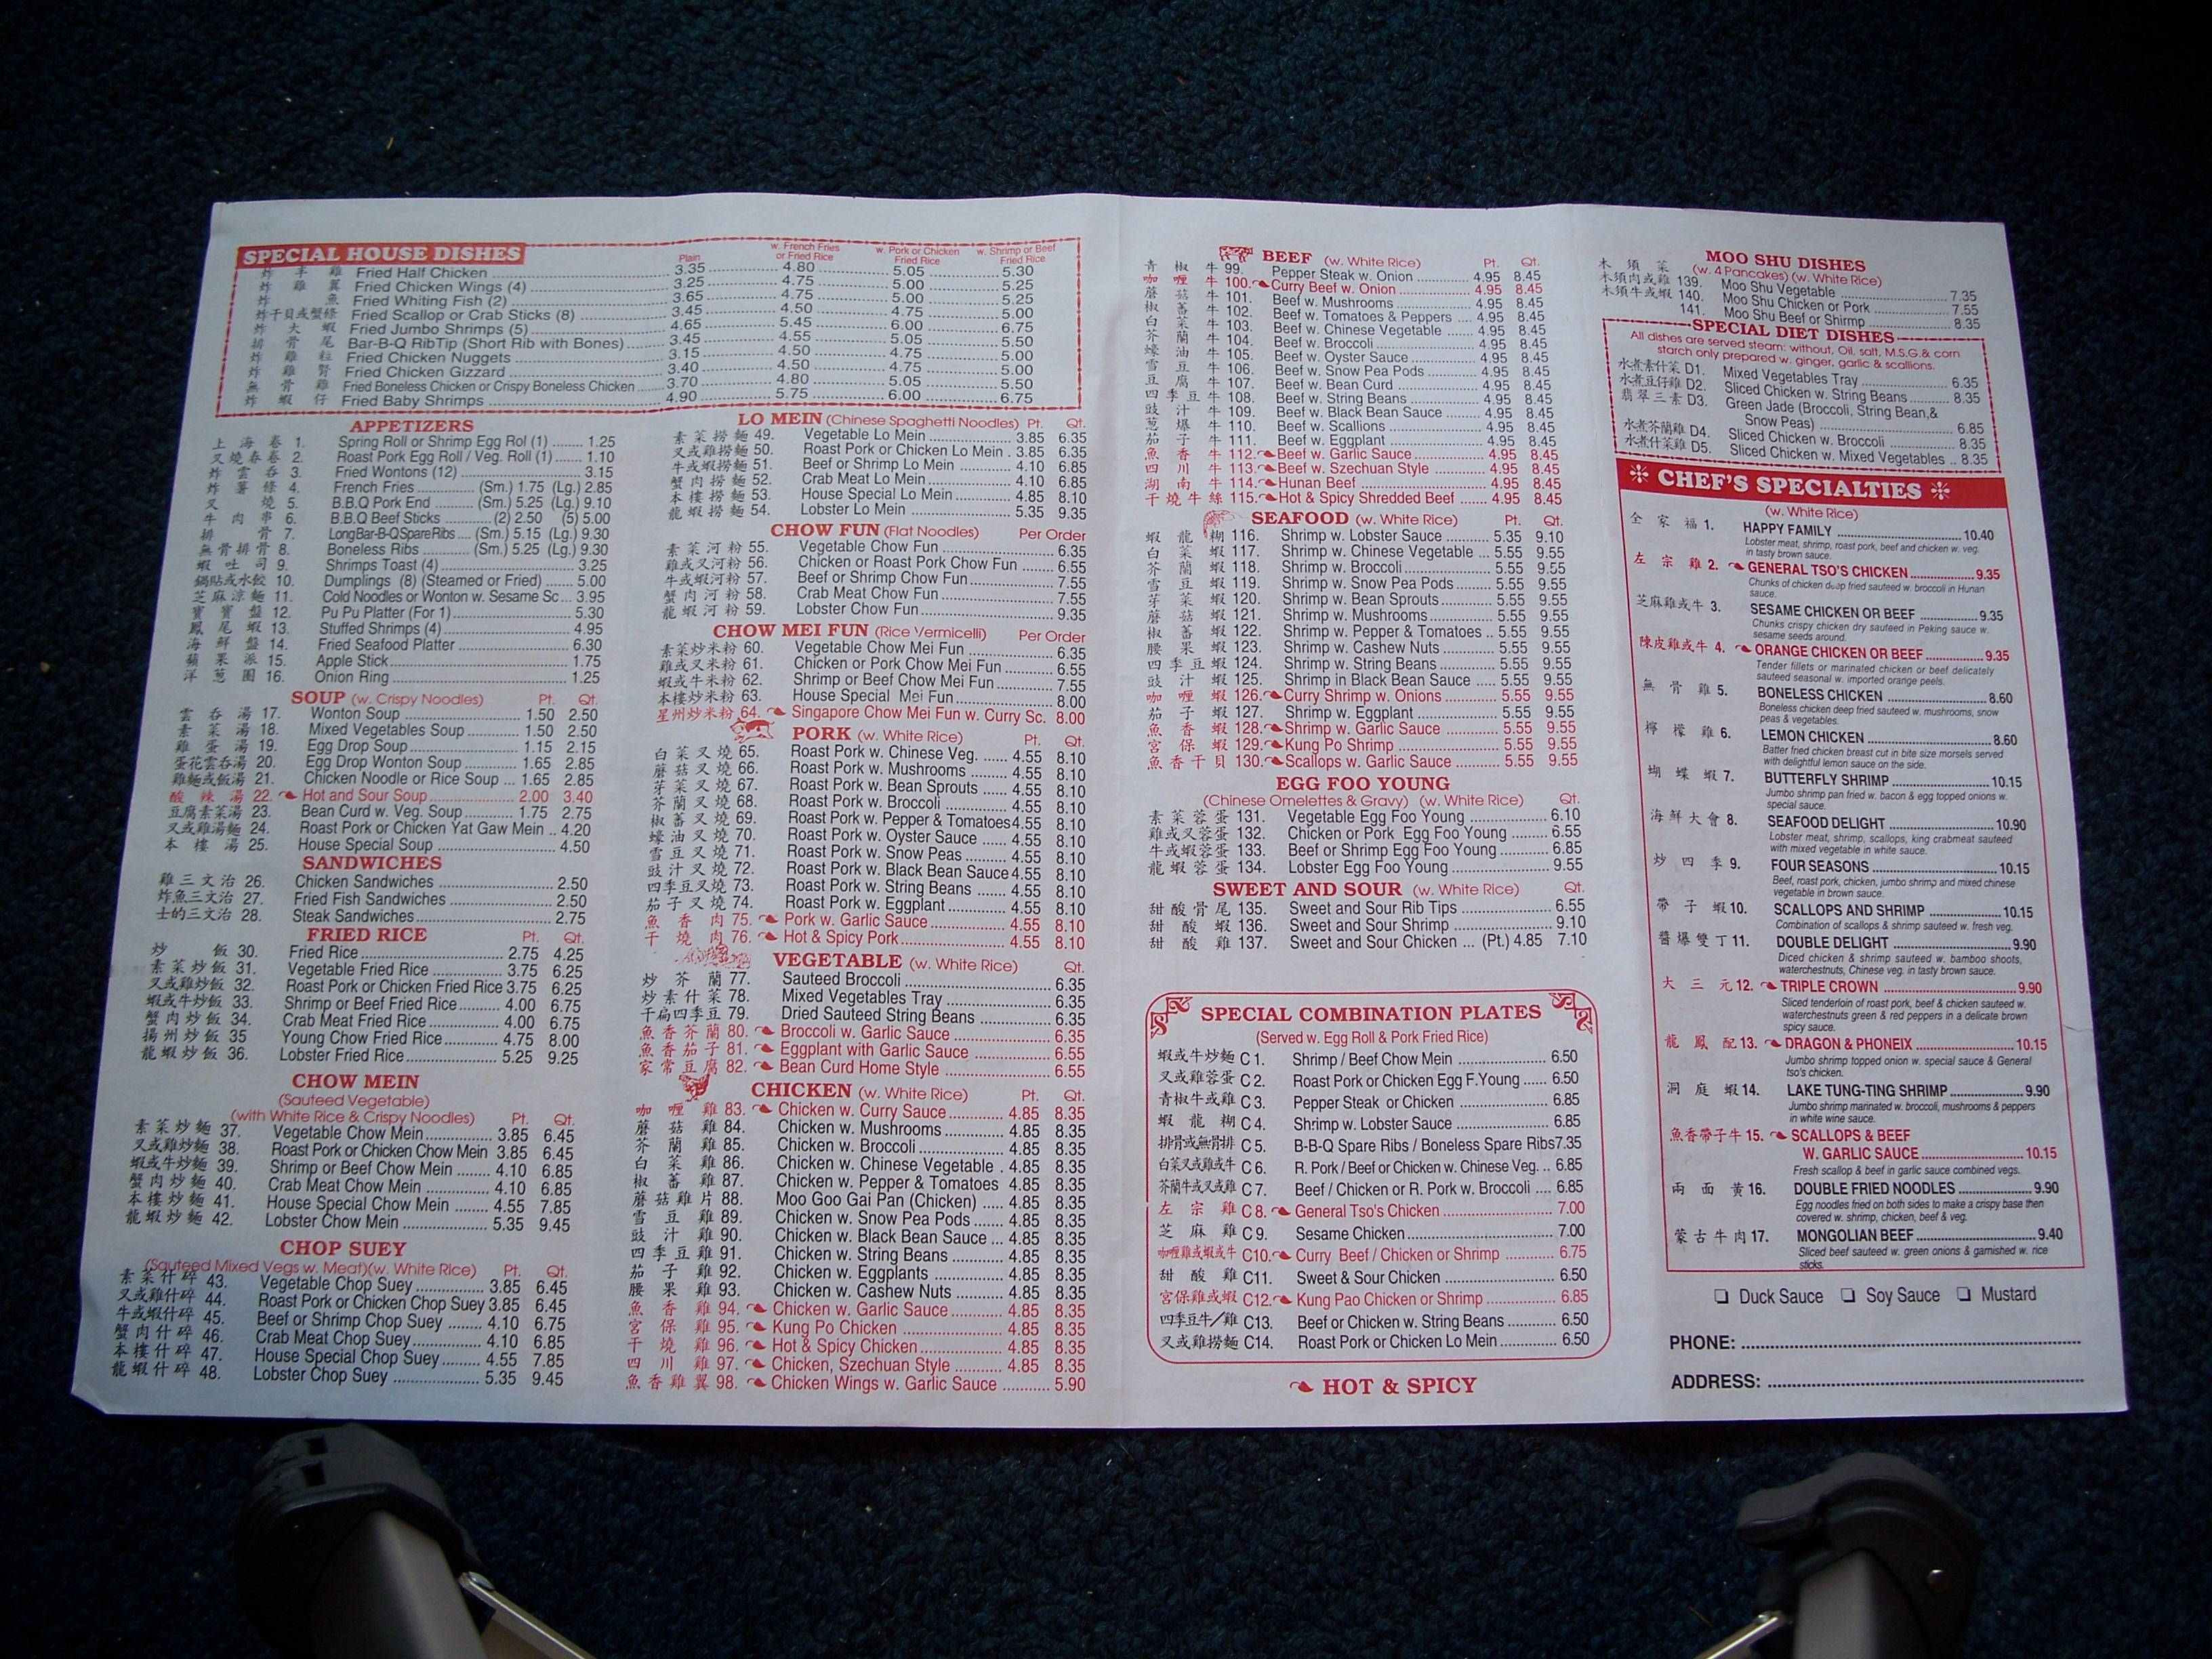 SPECIAL HOUSE DISHES
Plain w. French Fries or Fried Rice w. Pork or Chicken Fried Rice w. Shrimp or Beef Fried Rice
炸半雞 Fried Half Chicken 3.35 4.80 5.05 5.30
炸雞翼 Fried Chicken Wings (4) 3.25 4.75 5.00 5.25
炸魚 Fried Whiting Fish (2) 3.65 4.75 5.00 5.25
炸干貝或蟹條 Fried Scallop or Crab Sticks (8) 3.45 4.50 4.75 5.00
炸大蝦 Fried Jumbo Shrimps (5) 4.65 5.45 6.00 6.75
排骨尾 Bar-B-Q RibTip (Short Rib with Bones) 3.45 4.55 5.05 5.50
炸雞粒 Fried Chicken Nuggets 3.15 4.50 4.75 5.00
炸雞腎 Fried Chicken Gizzard 3.40 4.50 4.75 5.00
無骨雞 Fried Boneless Chicken or Crispy Boneless Chicken 3.70 4.80 5.05 5.50
炸蝦仔 Fried Baby Shrimps 4.90 5.75 6.00 6.75
APPETIZERS
上海卷 1. Spring Roll or Shrimp Egg Rol (1) 1.25
叉燒春卷 2. Roast Pork Egg Roll / Veg. Roll (1) 1.10
炸雲吞 3. Fried Wontons (12) 3.15
炸薯條 4. French Fries (Sm.) 1.75 (Lg.) 2.85
叉燒 5. B.B.Q Pork End (Sm.) 5.25 (Lg.) 9.10
牛肉串 6. B.B.Q Beef Sticks (2) 2.50 (5) 5.00
排骨 7. Long Bar-B-Q Spare Ribs (Sm.) 5.15 (Lg.) 9.30
無骨排骨 8. Boneless Ribs (Sm.) 5.25 (Lg.) 9.30
蝦吐司 9. Shrimps Toast (4) 3.25
鍋貼或水餃 10. Dumplings (8) (Steamed or Fried) 5.00
芝麻涼麵 11. Cold Noodles or Wonton w. Sesame Sc 3.95
寶寶盤 12. Pu Pu Platter (For 1) 5.30
鳳尾蝦 13. Stuffed Shrimps (4) 4.95
海鮮盤 14. Fried Seafood Platter 6.30
蘋果派 15. Apple Stick 1.75
洋葱圈 16. Onion Ring 1.25
SOUP (w. Crispy Noodles) Pt. Qt.
雲吞湯 17. Wonton Soup 1.50 2.50
素菜湯 18. Mixed Vegetables Soup 1.50 2.50
雞蛋湯 19. Egg Drop Soup 1.15 2.15
蛋花雲吞湯 20. Egg Drop Wonton Soup 1.65 2.85
雞麵或飯湯 21. Chicken Noodle or Rice Soup 1.65 2.85
酸辣湯 22. Hot and Sour Soup 2.00 3.40
豆腐素菜湯 23. Bean Curd w. Veg. Soup 1.75 2.75
叉或雞湯麵 24. Roast Pork or Chicken Yat Gaw Mein 4.20
本樓湯 25. House Special Soup 4.50
SANDWICHES
雞三文治 26. Chicken Sandwiches 2.50
炸魚三文治 27. Fried Fish Sandwiches 2.50
士的三文治 28. Steak Sandwiches 2.75
FRIED RICE Pt. Qt.
炒飯 30. Fried Rice 2.75 4.25
素菜炒飯 31. Vegetable Fried Rice 3.75 6.25
叉或雞炒飯 32. Roast Pork or Chicken Fried Rice 3.75 6.25
蝦或牛炒飯 33. Shrimp or Beef Fried Rice 4.00 6.75
蟹肉炒飯 34. Crab Meat Fried Rice 4.00 6.75
揚州炒飯 35 Young Chow Fried Rice 4.75 8.00
龍蝦炒飯 36. Lobster Fried Rice 5.25 9.25
CHOW MEIN
(Sauteed Vegetable)
(with White Rice & Crispy Noodles) Pt. Qt.
素菜炒麵 37. Vegetable Chow Mein 3.85 6.45
叉或雞炒麵 38. Roast Pork or Chicken Chow Mein 3.85 6.45
蝦或牛炒麵 39. Shrimp or Beef Chow Mein 4.10 6.85
蟹肉炒麵 40. Crab Meat Chow Mein 4.10 6.85
本樓炒麵 41. House Special Chow Mein 4.55 7.85
龍蝦炒麵 42. Lobster Chow Mein 5.35 9.45
CHOP SUEY
(Sauteed Mixed Vegs w. Meat)(w. White Rice) Pt. Qt.
素菜什碎 43. Vegetable Chop Suey 3.85 6.45
叉或雞什碎 44. Roast Pork or Chicken Chop Suey 3.85 6.45
牛或蝦什碎 45. Beef or Shrimp Chop Suey 4.10 6.75
蟹肉什碎 46. Crab Meat Chop Suey 4.10 6.85
本樓什碎 47. House Special Chop Suey 4.55 7.85
龍蝦什碎 48. Lobster Chop Suey 5.35 9.45
LO MEIN (Chinese Spaghetti Noodles) Pt. Qt.
素菜撈麵 49. Vegetable Lo Mein 3.85 6.35
叉或雞撈麵 50. Roast Pork or Chicken Lo Mein 3.85 6.35
牛或蝦撈麵 51. Beef or Shrimp Lo Mein 4.10 6.85
蟹肉撈麵 52. Crab Meat Lo Mein 4.10 6.85
本樓撈麵 53. House Special Lo Mein 4.85 8.10
龍蝦撈麵 54. Lobster Lo Mein 5.35 9.35
CHOW FUN (Flat Noodles) Per Order
素菜河粉 55. Vegetable Chow Fun 6.35
雞或叉河粉 56. Chicken or Roast Pork Chow Fun 6.55
牛或蝦河粉 57. Beef or Shrimp Chow Fun 7.55
蟹肉河粉 58. Crab Meat Chow Fun 7.55
龍蝦河粉 59. Lobster Chow Fun 9.35
CHOW MEI FUN (Rice Vermicelli) Per Order
素菜炒米粉 60. Vegetable Chow Mei Fun 6.35
雞或叉米粉 61. Chicken or Pork Chow Mei Fun 6.55
蝦或牛米粉 62. Shrimp or Beef Chow Mei Fun 7.55
本樓炒米粉 63. House Special Mei Fun 8.00
星州炒米粉 64. Singapore Chow Mei Fun w. Curry Sc. 8.00
PORK (w. White Rice) Pt. Qt.
白菜叉燒 65. Roast Pork w. Chinese Veg. 4.55 8.10
蘑菇叉燒 66. Roast Pork w. Mushrooms 4.55 8.10
芽菜叉燒 67. Roast Pork w. Bean Sprouts 4.55 8.10
芥蘭叉燒 68. Roast Pork w. Broccoli 4.55 8.10
椒蕃叉燒 69. Roast Pork w. Pepper & Tomatoes 4.55 8.10
蠔油叉燒 70. Roast Pork w. Oyster Sauce 4.55 8.10
雪豆叉燒 71. Roast Pork w. Snow Peas 4.55 8.10
豉汁叉燒 72. Roast Pork w. Black Bean Sauce 4.55 8.10
四季豆叉燒 73. Roast Pork w. String Beans 4.55 8.10
茄子叉燒 74. Roast Pork w. Eggplant 4.55 8.10
魚香肉 75. Pork w. Garlic Sauce 4.55 8.10
干燒肉 76. Hot & Spicy Pork 4.55 8.10
VEGETABLE (w. White Rice) Qt.
炒芥蘭 77. Sauteed Broccoli 6.35
炒素什菜 78. Mixed Vegetables Tray 6.35
干扁四季豆 79. Dried Sauteed String Beans 6.35
魚香芥蘭 80. Broccoli w. Garlic Sauce 6.35
魚香茄子 81. Eggplant with Garlic Sauce 6.55
家常豆腐 82. Bean Curd Home Style 6.55
CHICKEN (w. White Rice) Pt. Qt.
咖喱雞 83. Chicken w. Curry Sauce 4.85 8.35
蘑菇雞 84. Chicken w. Mushrooms 4.85 8.35
芥蘭雞 85. Chicken w. Broccoli 4.85 8.35
白菜雞 86. Chicken w. Chinese Vegetable 4.85 8.35
椒蕃雞 87. Chicken w. Pepper & Tomatoes 4.85 8.35
蘑菇雞片 88. Moo Goo Gai Pan (Chicken) 4.85 8.35
雪豆雞 89. Chicken w. Snow Pea Pods 4.85 8.35
豉汁雞 90. Chicken w. Black Bean Sauce 4.85 8.35
四季豆雞 91. Chicken w. String Beans 4.85 8.35
茄子雞 92. Chicken w. Eggplants 4.85 8.35
腰果雞 93. Chicken w. Cashew Nuts 4.85 8.35
魚香雞 94. Chicken w. Garlic Sauce 4.85 8.35
宮保雞 95. Kung Po Chicken 4.85 8.35
干燒雞 96. Hot & Spicy Chicken 4.85 8.35
四川雞 97. Chicken, Szechuan Style 4.85 8.35
魚香雞翼 98. Chicken Wings w. Garlic Sauce 5.90
BEEF (w. White Rice) Pt. Qt.
青椒牛 99. Pepper Steak w. Onion 4.95 8.45
咖喱牛 100. Curry Beef w. Onion 4.95 8.45
蘑菇牛 101. Beef w. Mushrooms 4.95 8.45
椒蕃牛 102. Beef w. Tomatoes & Peppers 4.95 8.45
白菜牛 103. Beef w. Chinese Vegetable 4.95 8.45
芥蘭牛 104. Beef w. Broccoli 4.95 8.45
蠔油牛 105. Beef w. Oyster Sauce 4.95 8.45
雪豆牛 106. Beef w. Snow Pea Pods 4.95 8.45
豆腐牛 107. Beef w. Bean Curd 4.95 8.45
四季豆牛 108. Beef w. String Beans 4.95 8.45
豉汁牛 109. Beef w. Black Bean Sauce 4.95 8.45
葱爆牛 110. Beef w. Scallions 4.95 8.45
茄子牛 111. Beef w. Eggplant 4.95 8.45
魚香牛 112. Beef w. Garlic Sauce 4.95 8.45
四川牛 113. Beef w. Szechuan Style 4.95 8.45
湖南牛 114. Hunan Beef 4.95 8.45
干燒牛絲 115. Hot & Spicy Shredded Beef 4.95 8.45
SEAFOOD (w. White Rice) Pt. Qt.
蝦龍糊 116. Shrimp w. Lobster Sauce 5.35 9.10
白菜蝦 117. Shrimp w. Chinese Vegetable 5.55 9.55
芥蘭蝦 118. Shrimp w. Broccoli 5.55 9.55
雪豆蝦 119. Shrimp w. Snow Pea Pods 5.55 9.55
芽菜蝦 120. Shrimp w. Bean Sprouts 5.55 9.55
蘑菇蝦 121. Shrimp w. Mushrooms 5.55 9.55
椒蕃蝦 122. Shrimp w. Pepper & Tomatoes 5.55 9.55
腰果蝦 123. Shrimp w. Cashew Nuts 5.55 9.55
四季豆蝦 124. Shrimp w. String Beans 5.55 9.55
豉汁蝦 125. Shrimp in Black Bean Sauce 5.55 9.55
咖喱蝦 126. Curry Shrimp w. Onions 5.55 9.55
茄子蝦 127. Shrimp w. Eggplant 5.55 9.55
魚香蝦 128. Shrimp w. Garlic Sauce 5.55 9.55
宮保蝦 129. Kung Po Shrimp 5.55 9.55
魚香干貝 130. Scallops w. Garlic Sauce 5.55 9.55
EGG FOO YOUNG
(Chinese Omelettes & Gravy) (w. White Rice) Qt.
素菜蓉蛋 131. Vegetable Egg Foo Young 6.10
雞或叉蓉蛋 132. Chicken or Pork Egg Foo Young 6.55
牛或蝦蓉蛋 133. Beef or Shrimp Egg Foo Young 6.85
龍蝦蓉蛋 134. Lobster Egg Foo Young 9.55
SWEET AND SOUR (w. White Rice) Qt.
甜酸骨尾 135. Sweet and Sour Rib Tips 6.55
甜酸蝦 136. Sweet and Sour Shrimp 9.10
甜酸雞 137. Sweet and Sour Chicken (Pt.) 4.85 7.10
SPECIAL COMBINATION PLATES
(Served w. Egg Roll & Pork Fried Rice)
蝦或牛炒麵 C 1. Shrimp / Beef Chow Mein 6.50
叉或雞蓉蛋 C 2. Roast Pork or Chicken Egg F.Young 6.50
青椒牛或雞 C 3. Pepper Steak or Chicken 6.85
蝦龍糊 C 4. Shrimp w. Lobster Sauce 6.85
排骨或無骨排 C 5. B-B-Q Spare Ribs / Boneless Spare Ribs 7.35
白菜叉或雞或牛 C 6. R. Pork / Beef or Chicken w. Chinese Veg. 6.85
芥蘭牛或叉或雞 C 7. Beef / Chicken or R. Pork w. Broccoli 6.85
左宗雞 C 8. General Tso's Chicken 7.00
芝麻雞 C 9. Sesame Chicken 7.00
咖喱雞或蝦或牛 C10. Curry Beef / Chicken or Shrimp 6.75
甜酸雞 C11. Sweet & Sour Chicken 6.50
宮保雞或蝦 C12. Kung Pao Chicken or Shrimp 6.85
四季豆牛/雞 C13. Beef or Chicken w. String Beans 6.50
叉或雞撈麵 C14. Roast Pork or Chicken Lo Mein 6.50
HOT & SPICY
MOO SHU DISHES
(w. 4 Pancakes) (w. White Rice)
木須菜 139. Moo Shu Vegetable 7.35
木須肉或雞 140. Moo Shu Chicken or Pork 7.55
木須牛或蝦 141. Moo Shu Beef or Shirmp 8.35
SPECIAL DIET DISHES
All dishes are served steam: without, Oil, salt, M.S.G.& corn
starch only prepared w. ginger, garlic & scallions.
水煮素什菜 D1. Mixed Vegetables Tray 6.35
水煮豆仔雞 D2. Sliced Chicken w. String Beans 8.35
翡翠三素 D3. Green Jade (Broccoli, String Bean,&
Snow Peas) 6.85
水煮芥蘭雞 D4. Sliced Chicken w. Broccoli 8.35
水煮什菜雞 D5. Sliced Chicken w. Mixed Vegetables 8.35
CHEF'S SPECIALTIES
(w. White Rice)
全家福 1. HAPPY FAMILY 10.40
Lobster meat, shrimp, roast pork, beef and chicken w. veg.
in tasty brown sauce.
左宗雞 2. GENERAL TSO'S CHICKEN 9.35
Chunks of chicken deep fried sauteed w. broccoli in Hunan
sauce.
芝麻雞或牛 3. SESAME CHICKEN OR BEEF 9.35
Chunks crispy chicken dry sauteed in Peking sauce w.
sesame seeds around.
陳皮雞或牛 4. ORANGE CHICKEN OR BEEF 9.35
Tender fillets or marinated chicken or beef delicately
sauteed seasonal w. imported orange peels.
無骨雞 5. BONELESS CHICKEN 8.60
Boneless chicken deep fried sauteed w. mushrooms, snow
peas & vegetables.
檸檬雞 6. LEMON CHICKEN 8.60
Batter fried chicken breast cut in bite size morsels served
with delightful lemon sauce on the side.
蝴蝶蝦 7. BUTTERFLY SHRIMP 10.15
Jumbo shrimp pan fried w. bacon & egg topped onions w.
special sauce.
海鮮大會 8. SEAFOOD DELIGHT 10.90
Lobster meat, shrimp, scallops, king crabmeat sauteed
with mixed vegetable in white sauce.
炒四季 9. FOUR SEASONS 10.15
Beef, roast pork, chicken, jumbo shrimp and mixed chinese
vegetable in brown sauce.
帶子蝦 10. SCALLOPS AND SHRIMP 10.15
Combination of scallops & shrimp sauteed w. fresh veg.
醬爆雙丁 11. DOUBLE DELIGHT 9.90
Diced chicken & shrimp sauteed w. bamboo shoots,
waterchestnuts, Chinese veg. in tasty brown sauce.
大三元 12. TRIPLE CROWN 9.90
Sliced tenderloin of roast pork, beef & chicken sauteed w.
waterchestnuts green & red peppers in a delicate brown
spicy sauce.
龍鳳配 13. DRAGON & PHONEIX 10.15
Jumbo shrimp topped onion w. special sauce & General
tso's chicken.
洞庭蝦 14. LAKE TUNG-TING SHRIMP 9.90
Jumbo shrimp marinated w. broccoli, mushrooms & peppers
in white wine sauce.
魚香帶子牛 15. SCALLOPS & BEEF
W. GARLIC SAUCE 10.15
Fresh scallop & beef in garlic sauce combined vegs.
兩面黃 16. DOUBLE FRIED NOODLES 9.90
Egg noodles fried on both sides to make a crispy base then
covered w. shrimp, chicken, beef & veg.
蒙古牛肉 17. MONGOLIAN BEEF 9.40
Sliced beef sauteed w. green onions & garnished w. rice
sticks.
Duck Sauce Soy Sauce Mustard
PHONE:
ADDRESS: